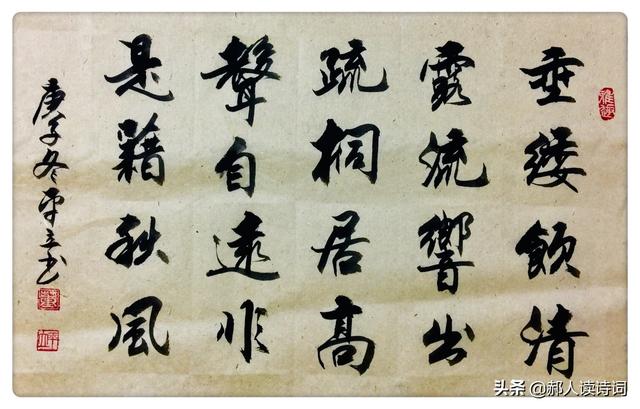 垂緌飲清
露流響出
疏桐居高
聲自遠非
是籍秋風
庚子冬平立书
头条 @郝人读诗词